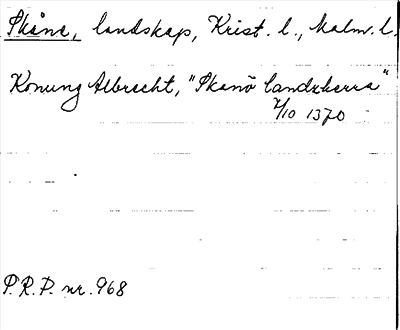 Skåne, landskap, Krist. l., Malm. l.
Konung Albrecht, "Skanö landzherra"
7/10 1370
P.R.P. nr. 968